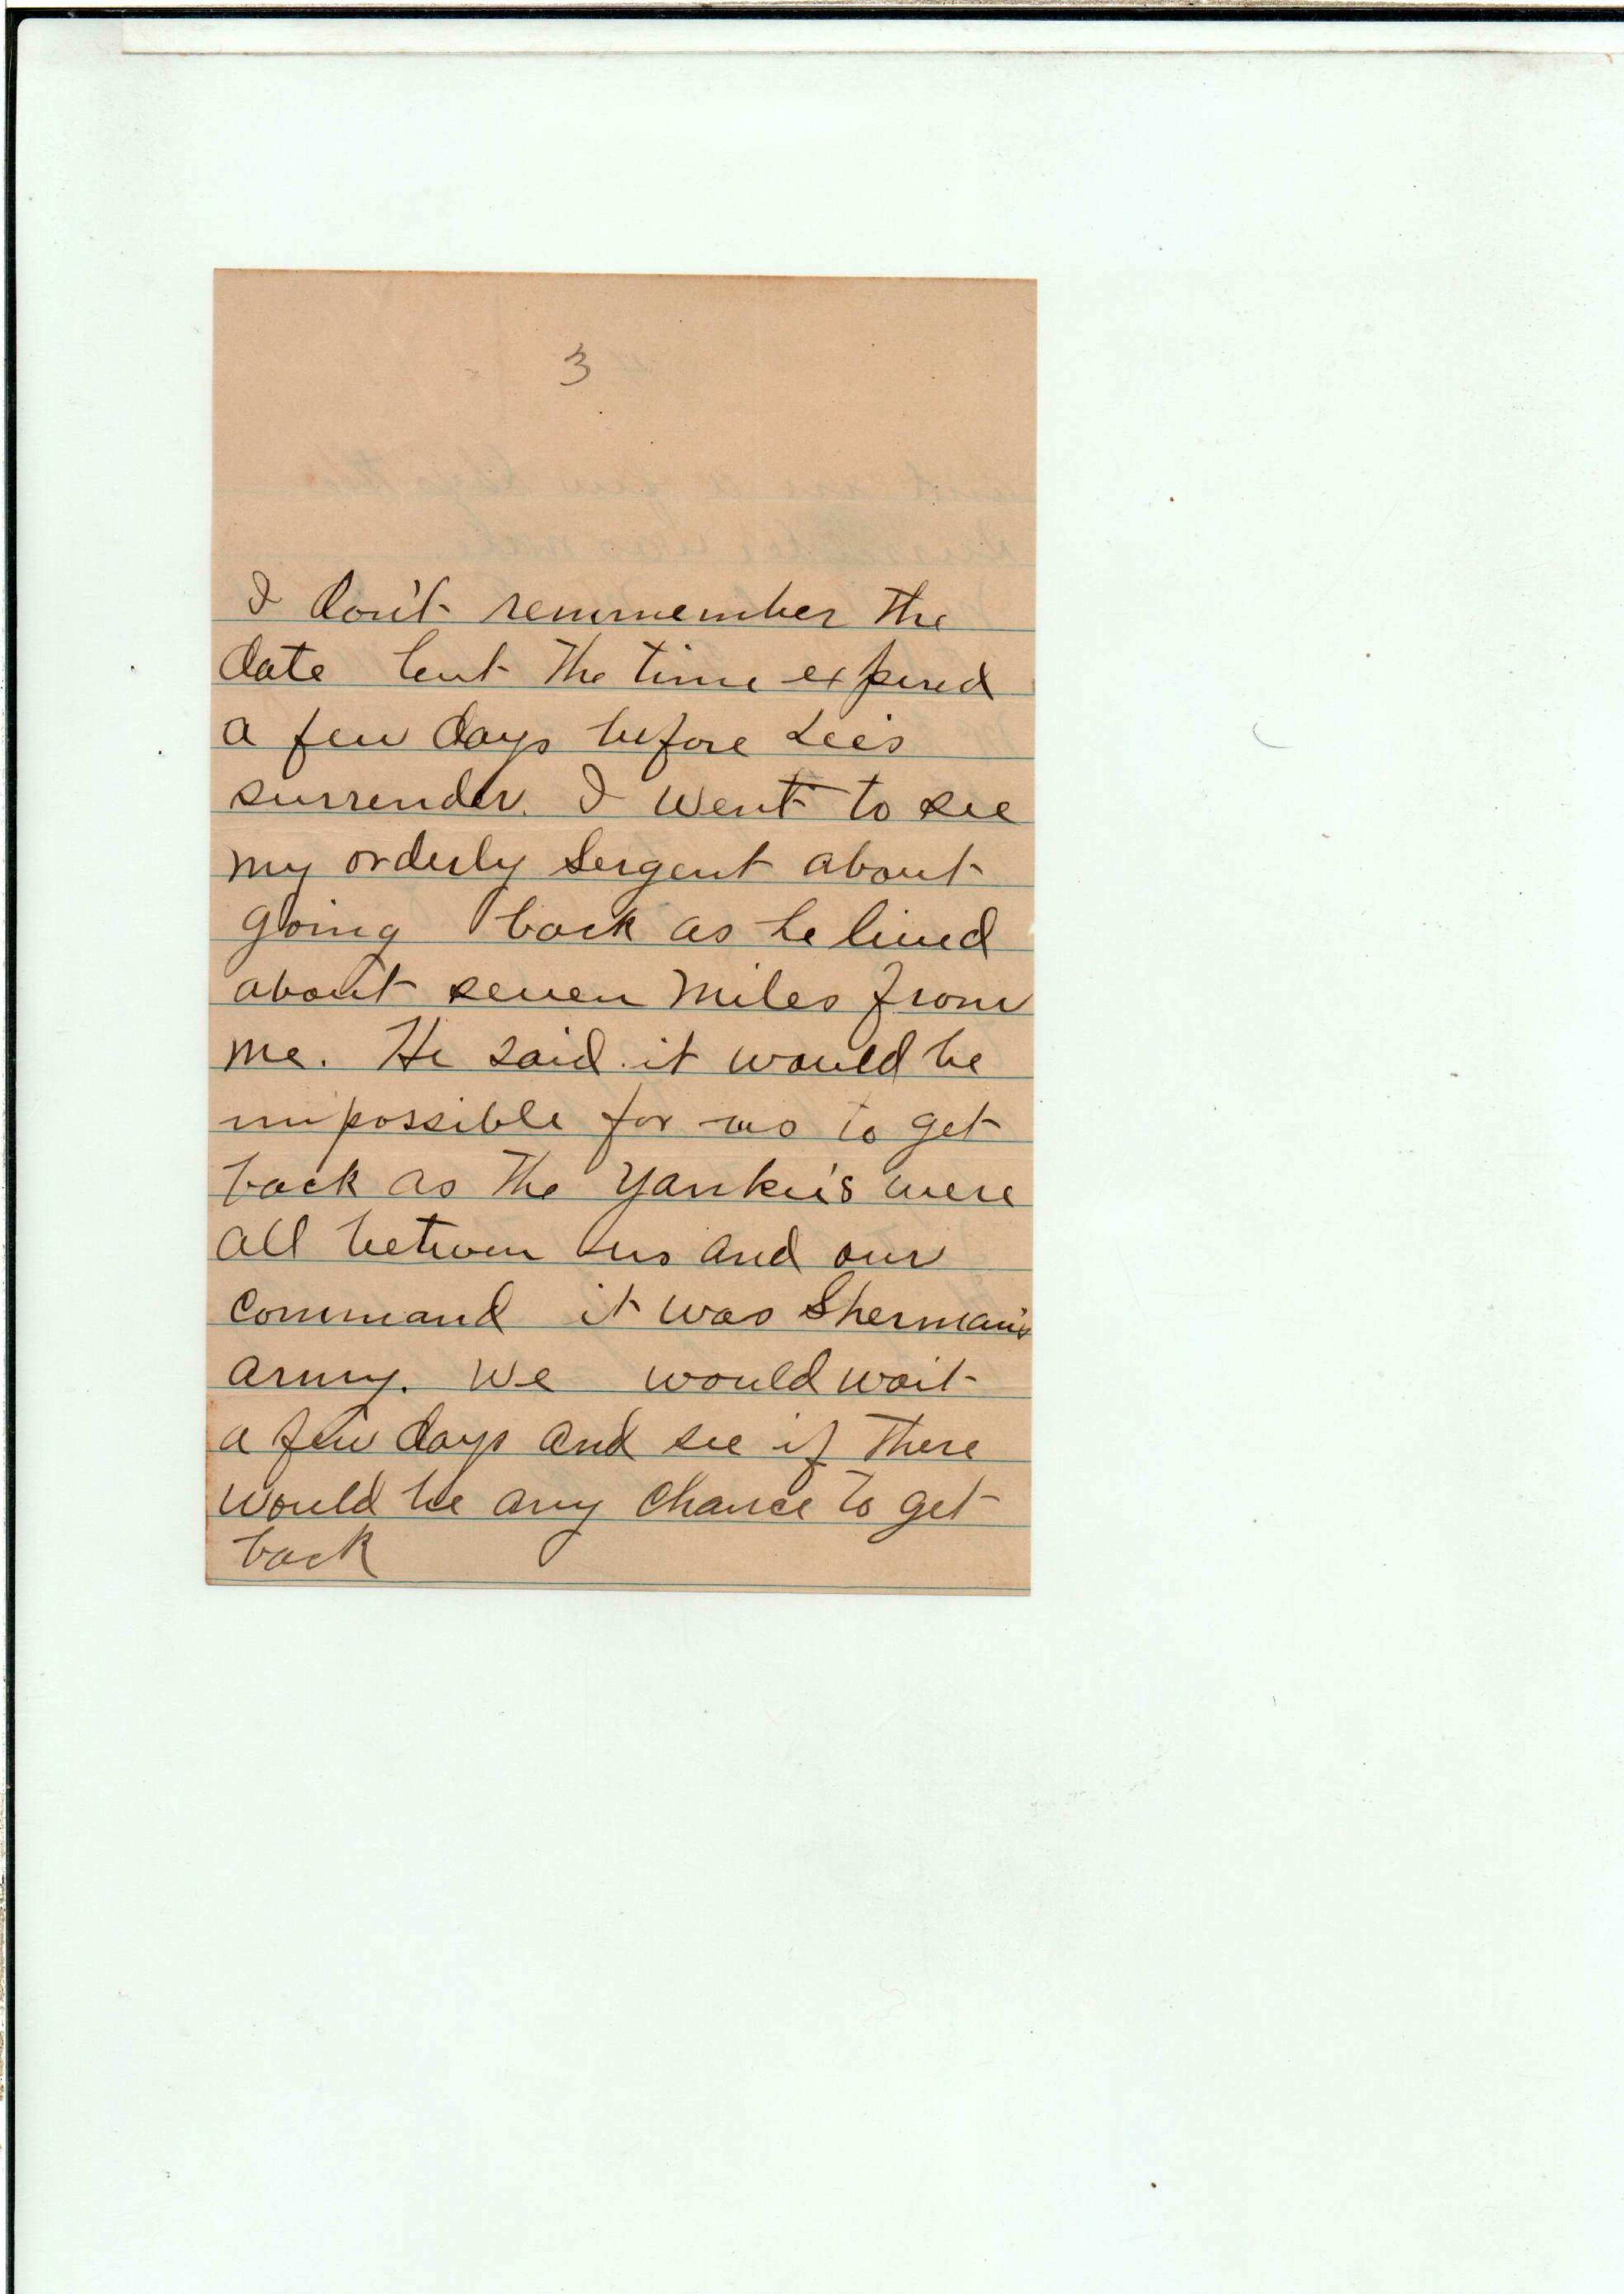 3
I don't remmember the
date but the time expired
a few days before Lee's
surrender. I went to see
my orderly Sergent about
going back as he lived
about seven miles from
me. He said it would be
impossible for us to get
back as the Yankei's were
all betwen us and our
command it was Sherman's
army. We would wait
a few days and see if there
would be any chance to get
back